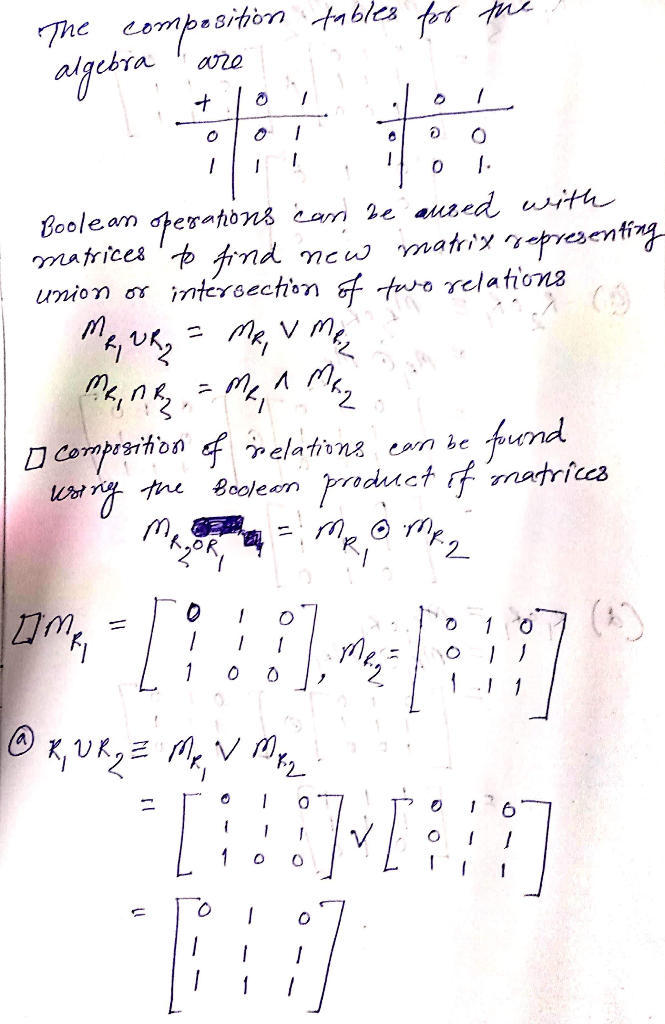 The composition tables for the
algebra are
+ | 0 1    . | 0 1
0 | 0 1    0 | 0 0
1 | 1 1    1 | 0 1.
Boolean operations can be used with
matrices to find new matrix representing
union or intersection of two relations
M_{R_1 ∪ R_2} = M_{R_1} ∨ M_{R_2}
M_{R_1 ∩ R_2} = M_{R_1} ∧ M_{R_2}
□ Composition of relations can be found
using the Boolean product of matrices
M_{R_2 o R_1} = M_{R_1} ⊙ M_{R_2}
□ M_{R_1} = [0 1 0; 1 1 1; 1 0 0], M_{R_2} = [0 1 0; 0 1 1; 1 1 1]
ⓐ R_1 ∪ R_2 ≡ M_{R_1} ∨ M_{R_2}
= [0 1 0; 1 1 1; 1 0 0] ∨ [0 1 0; 0 1 1; 1 1 1]
= [0 1 0; 1 1 1; 1 1 1]